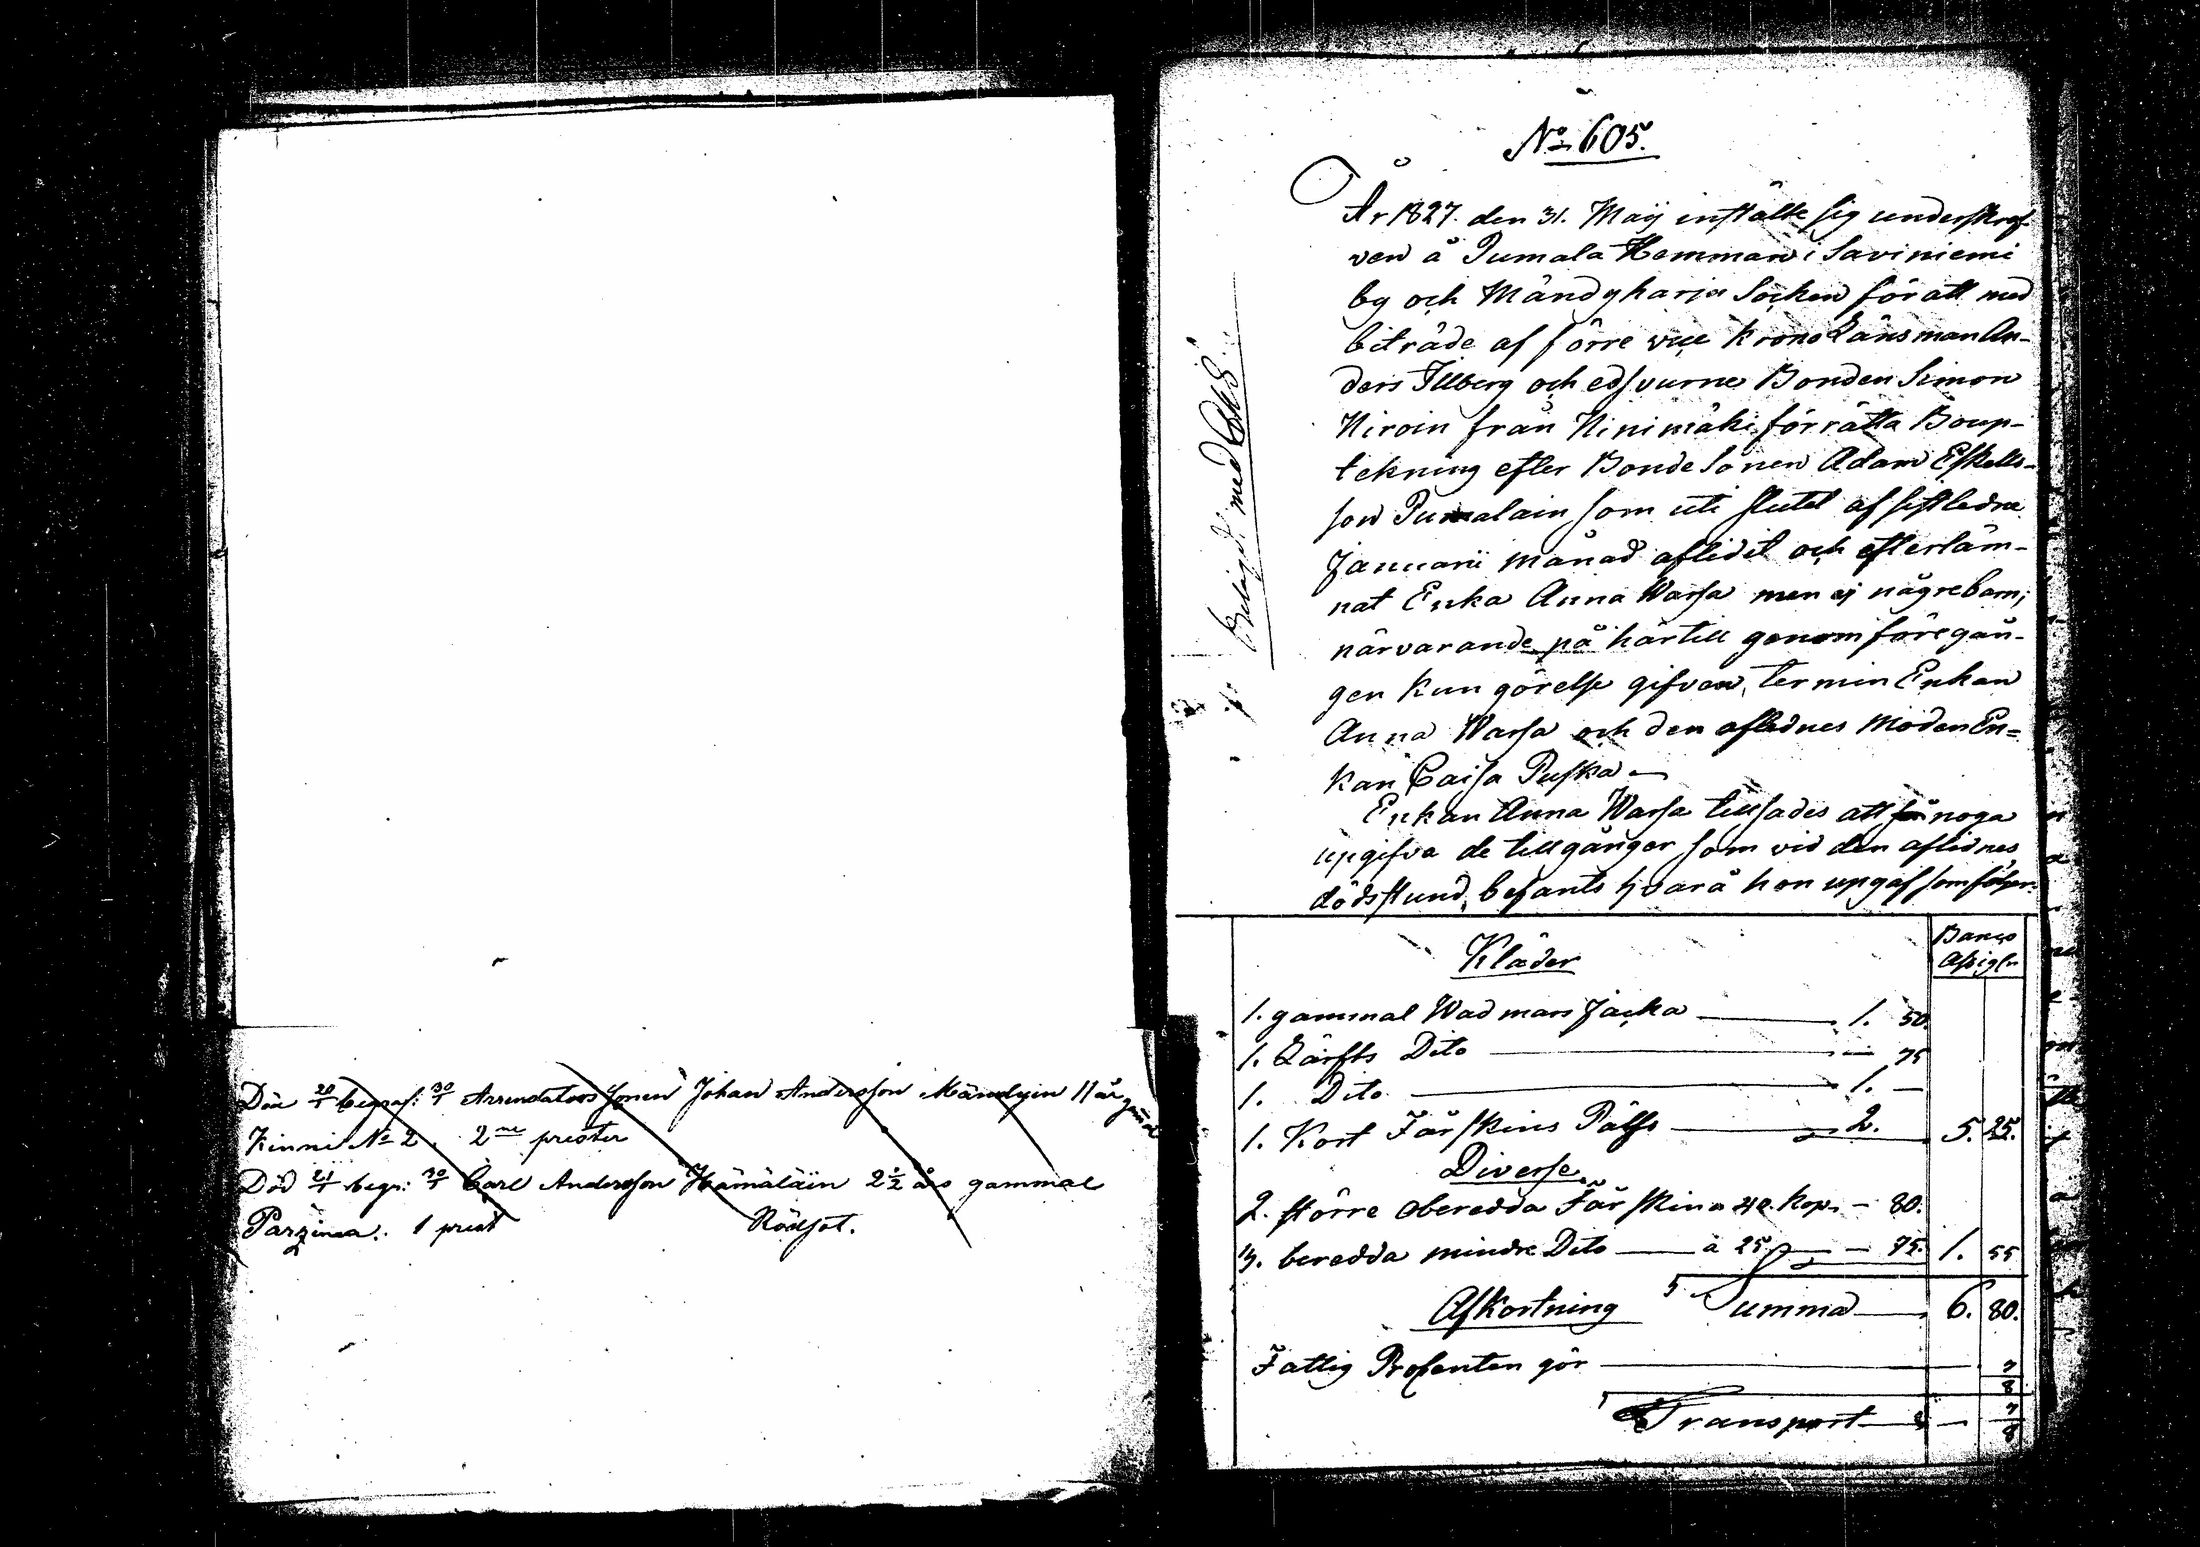 Död 20/1 begraf: 30/1 Arrendators Sonen Johan Andersson Mändyin 11 år gamal
Kinni No 2. 2ne prester
Död 21/1 begr: 30/1 Carl Andersson Hämäläin 2 1/2 års gammal
1 prest Rödsot.
No 605.
År 1827. den 31. Maij instälte sig underskref-
ven å Pumala Hemman i Saviniemi
by och Mändyharju Socken för att med
biträde af förre vice Krono Länsman An-
ders Illberg och edsvurne Bonden Simon
Niroin från Ninimäki förrätta Boup-
tekning efter Bonde Sonen Adam Eskells-
son Pumalain som uti slutet af sistledne
Januarii månad aflidit och efterläm-
nat Enka Anna Warsa men ej någre barn;
närvarande på härtill genom föregån-
gen Kungörelse gifven termin Enkan
Anna Warsa och den aflednes Moder En=
kan Caisa Puska
Enkan Anna Warsa tillsades att noga
upgifva de tillgångar som vid den aflidnes
dödsstund befants hvarå hon upgaf som följer:
Banco
Assigln
Kläder
1. gammal Wadmars Jacka 1. 50.
1. Lärfts Dito — 75
1. Dito 1. —
1. Kort Fårskins Päls 2. 5. 25.
Diverse
2. större oberedda Fårskin a 40. Kop. — 80.
3. beredda mindre Dito à 25 — 75. 1. 55
Summa 6. 80.
Afkortning
Fattig Procenten gör 7/8
Transport — 7/8